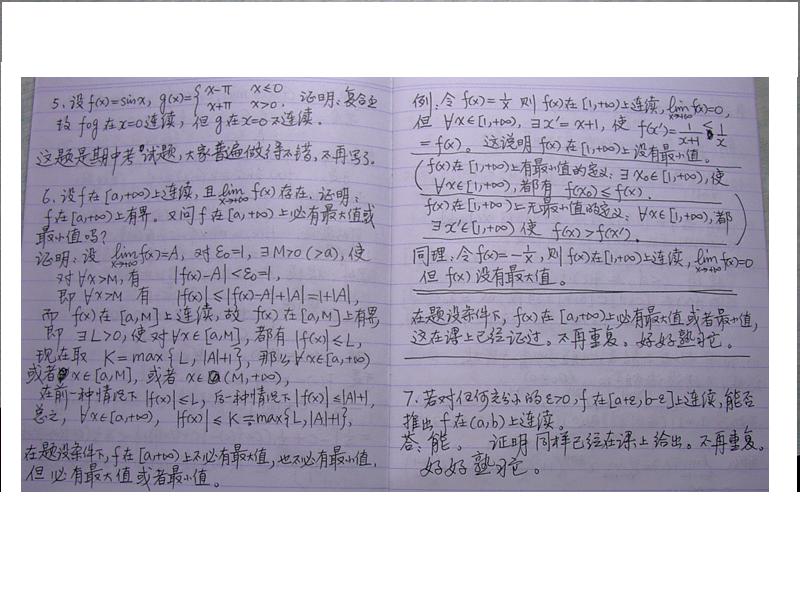 5、设 f(x)=sinx, g(x)={ x-π x≤0
x+π x>0 . 证明:复合函
数 fog 在 x=0 连续，但 g 在 x=0 不连续。
这题是期中考试题，大家普遍做得不错，不再写了。
6、设 f 在 [a,+∞) 上连续，且 lim x→+∞ f(x) 存在、证明:
f 在 [a,+∞) 上有界。又问 f 在 [a,+∞) 上必有最大值或
最小值吗？
证明: 设 lim x→+∞ f(x)=A, 对 ε₀=1, ∃M>0 (>a), 使
对∀x>M, 有 |f(x)-A|<ε₀=1,
即 ∀x>M 有 |f(x)|≤|f(x)-A|+|A|=1+|A|,
而 f(x) 在 [a,M] 上连续, 故 f(x) 在 [a,M] 上有界,
即 ∃L>0, 使对∀x∈[a,M], 都有 |f(x)|≤L,
现在取 K=max{L,|A|+1}, 那么∀x∈[a,+∞)
或者 x∈[a,M], 或者 x∈(M,+∞),
在前一种情况下 |f(x)|≤L, 后一种情况下 |f(x)|≤|A|+1,
总之, ∀x∈[a,+∞), |f(x)|≤K=max{L,|A|+1},
在题设条件下, f 在 [a,+∞) 上不必有最大值, 也不必有最小值,
但必有最大值或者最小值。
例: 令 f(x)=1/x 则 f(x) 在 [1,+∞) 上连续, lim x→+∞ f(x)=0,
但 ∀x∈[1,+∞), ∃x'=x+1, 使 f(x')=1/(x+1)≤1/x
=f(x)。这说明 f(x) 在 [1,+∞) 上没有最小值。
(f(x) 在 [1,+∞) 上有最小值的定义: ∃x₀∈[1,+∞), 使
∀x∈[1,+∞), 都有 f(x₀)≤f(x).
f(x) 在 [1,+∞) 上无最小值的定义: ∀x∈[1,+∞), 都
∃x'∈[1,+∞) 使 f(x)>f(x').)
同理: 令 f(x)=-1/x, 则 f(x) 在 [1,+∞) 上连续, lim x→+∞ f(x)=0
但 f(x) 没有最大值。
在题设条件下, f(x) 在 [a,+∞) 上必有最大值或者最小值,
这在课上已经证过。不再重复。好好熟习它。
7、若对任何充分小的 ε>0, f 在 [a+ε,b-ε] 上连续, 能否
推出 f 在 (a,b) 上连续。
答: 能。 证明同样已经在课上给出。不再重复。
好好熟习它。